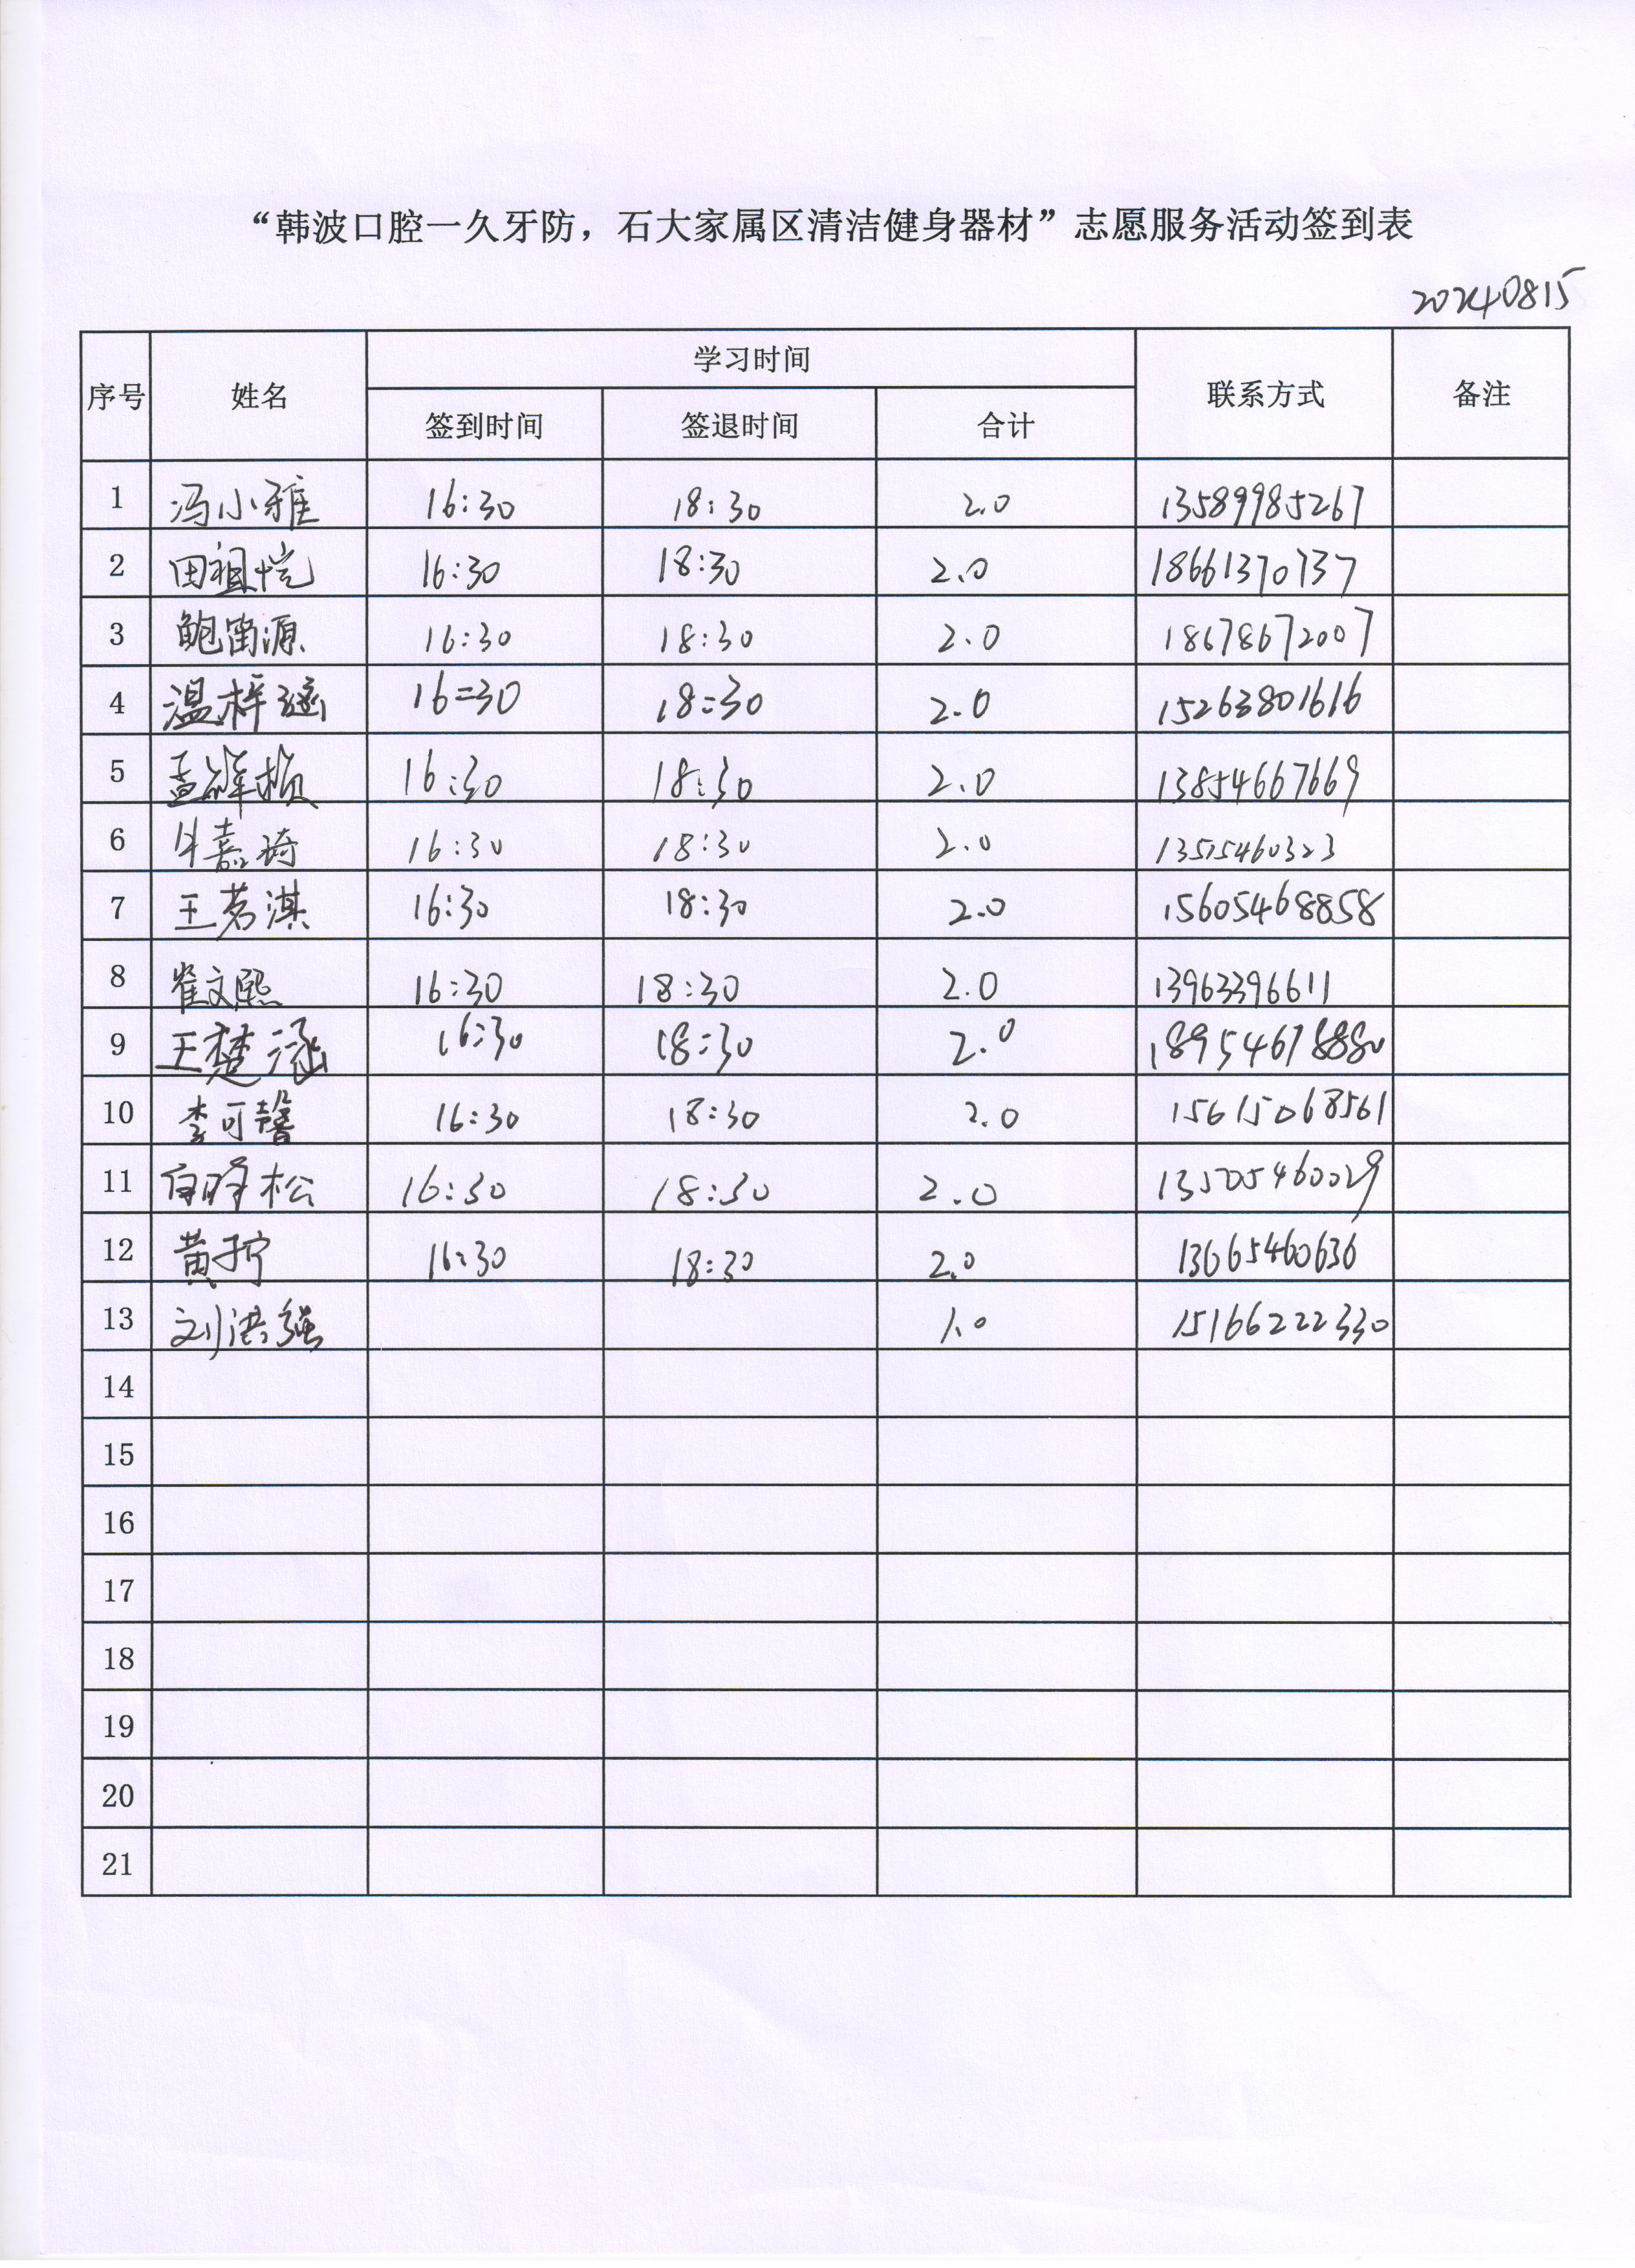 “韩波口腔一久牙防，石大家属区清洁健身器材”志愿服务活动签到表
20240815
序号 姓名 学习时间 联系方式 备注
签到时间 签退时间 合计
1 冯小雅 16:30 18:30 2.0 13589985267
2 田祖恺 16:30 18:30 2.0 18661370737
3 鲍雷源 16:30 18:30 2.0 18678672007
4 温梓涵 16:30 18:30 2.0 15263801616
5 孟祥桢 16:30 18:30 2.0 13854667669
6 牛嘉琦 16:30 18:30 2.0 13515460323
7 王茗淇 16:30 18:30 2.0 15605468858
8 崔文熙 16:30 18:30 2.0 13963396611
9 王楚涵 16:30 18:30 2.0 18954678880
10 李可馨 16:30 18:30 2.0 15615068561
11 松 16:30 18:30 2.0 13505460029
12 黄子宁 16:30 18:30 2.0 13665460636
13 刘洪强 1.0 15166222330
14
15
16
17
18
19
20
21